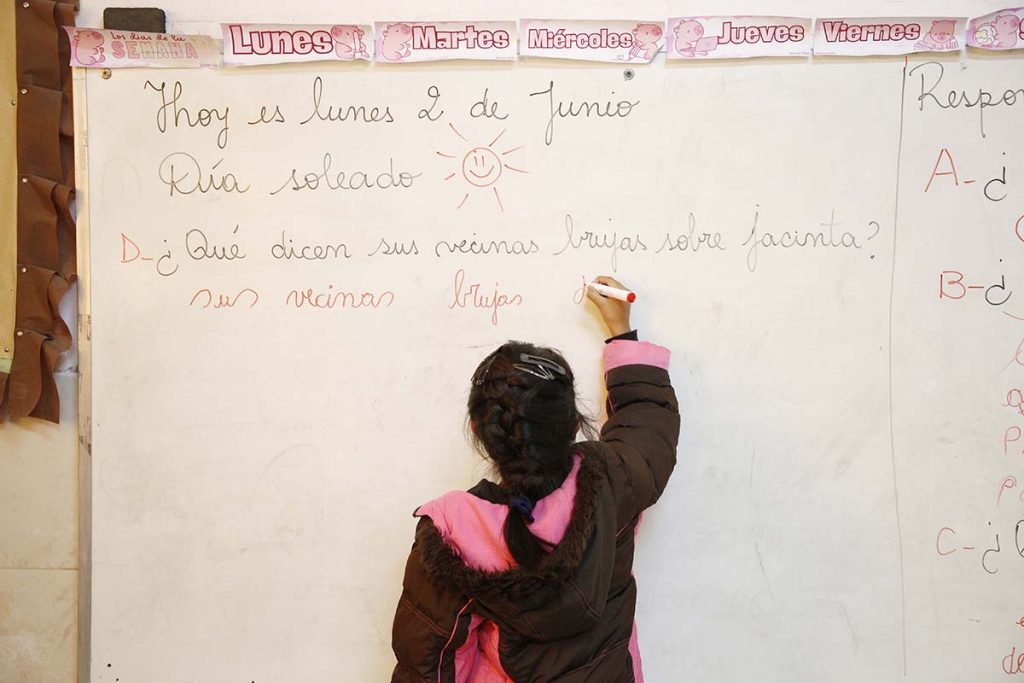 Los días de la SEMANA
Lunes
Martes
Miércoles
Jueves
Viernes
Hoy es lunes 2 de Junio
Día soleado
D-¿Qué dicen sus vecinas brujas sobre Jacinta?
sus vecinas brujas
A-¿
B-¿
C-¿